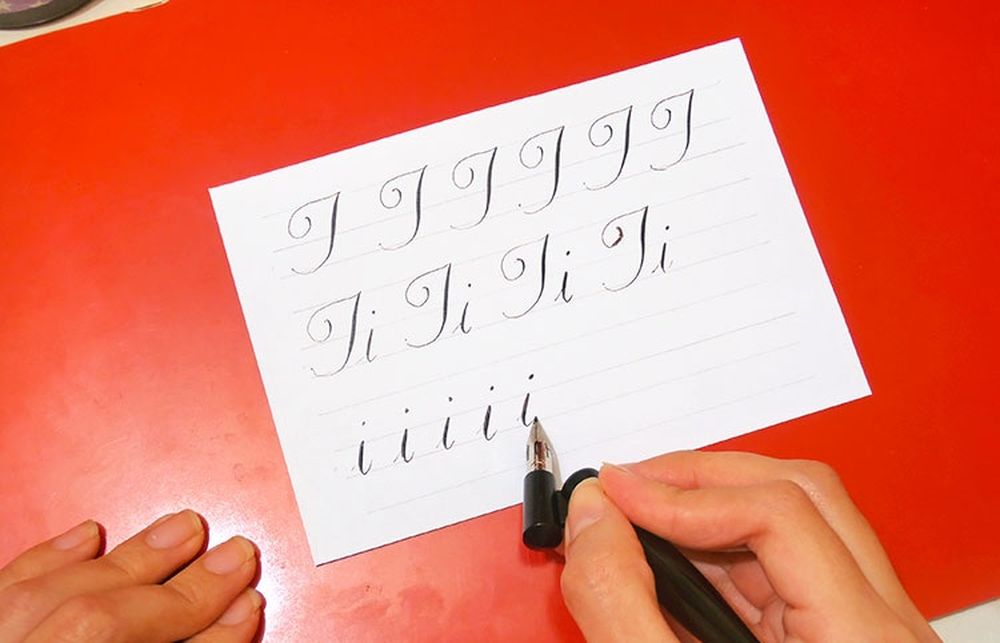 I I I I I I
Ii Ii Ii Ii
i i i i i